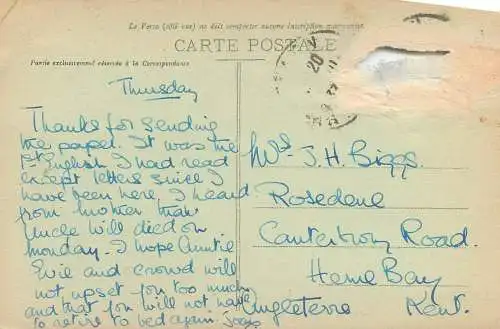 Le Verso (côté vue) ne doit comporter aucune inscription manuscrite.
CARTE POSTALE
Partie exclusivement réservée à la Correspondance
20
Thursday
Thanks for sending
me paper. It was the
1st English I had read
except letters since I
have been here. I heard
from mother that
Uncle Will died on
Monday. I hope Auntie
Evie and crowd will
not upset you too much
and that you will not have
to retire to bed again.
Mrs. J. H. Biggs.
Rosedene
Canterbury Road.
Herne Bay
Kent.
Angleterre